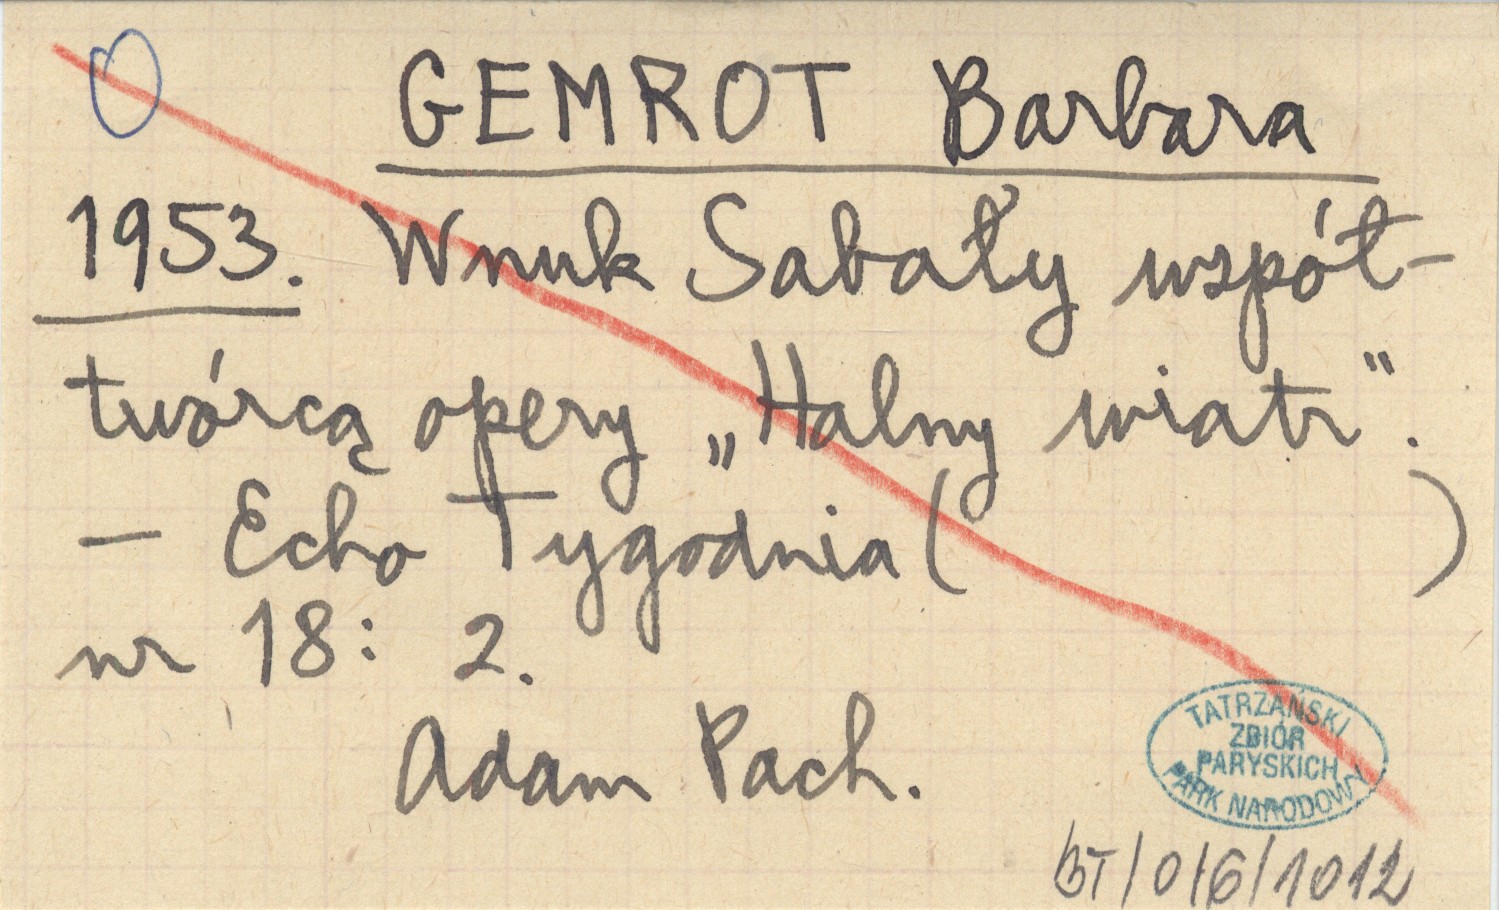 GEMROT Barbara
1953. Wnuk Sabały współ-
twórcą opery „Halny wiatr".
– Echo Tygodnia (          )
nr 18: 2.
Adam Pach.
TATRZAŃSKI
ZBIÓR
PARYSKICH
PARK NARODOWY
BT/0/6/1012